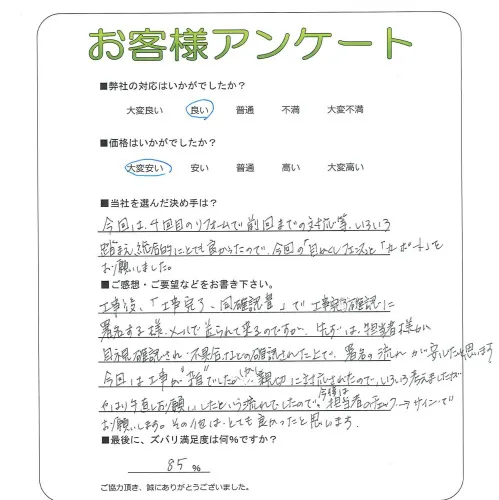 お客様アンケート
■弊社の対応はいかがでしたか？
大変良い 良い 普通 不満 大変不満
■価格はいかがでしたか？
大変安い 安い 普通 高い 大変高い
■当社を選んだ決め手は？
今回は、4回目のリフォームで前回までの対応等、いろいろ
踏まえ総合的にとても良かったので、今回の「目かくしフェンス」と「カーポート」を
お願いしました。
■ご感想・ご要望などをお書き下さい。
工事後、「工事完了、同確認書」で工事完了確認に
署名する様、メールで送られて来るのですが、先ずは、担当者様が
目視確認され、不具合なしの確認されたことで、署名の流れが宜しいと思います
今回は工事が"雑"でした が 親切に対応されたので、いろいろ考えましたが
やはり手直しお願いしたという流れでしたので、今後は担当者のチェック→サインで
お願いします。その他は、とても良かったと思います。
■最後に、ズバリ満足度は何％ですか？
85 %
ご協力頂き、誠にありがとうございました。